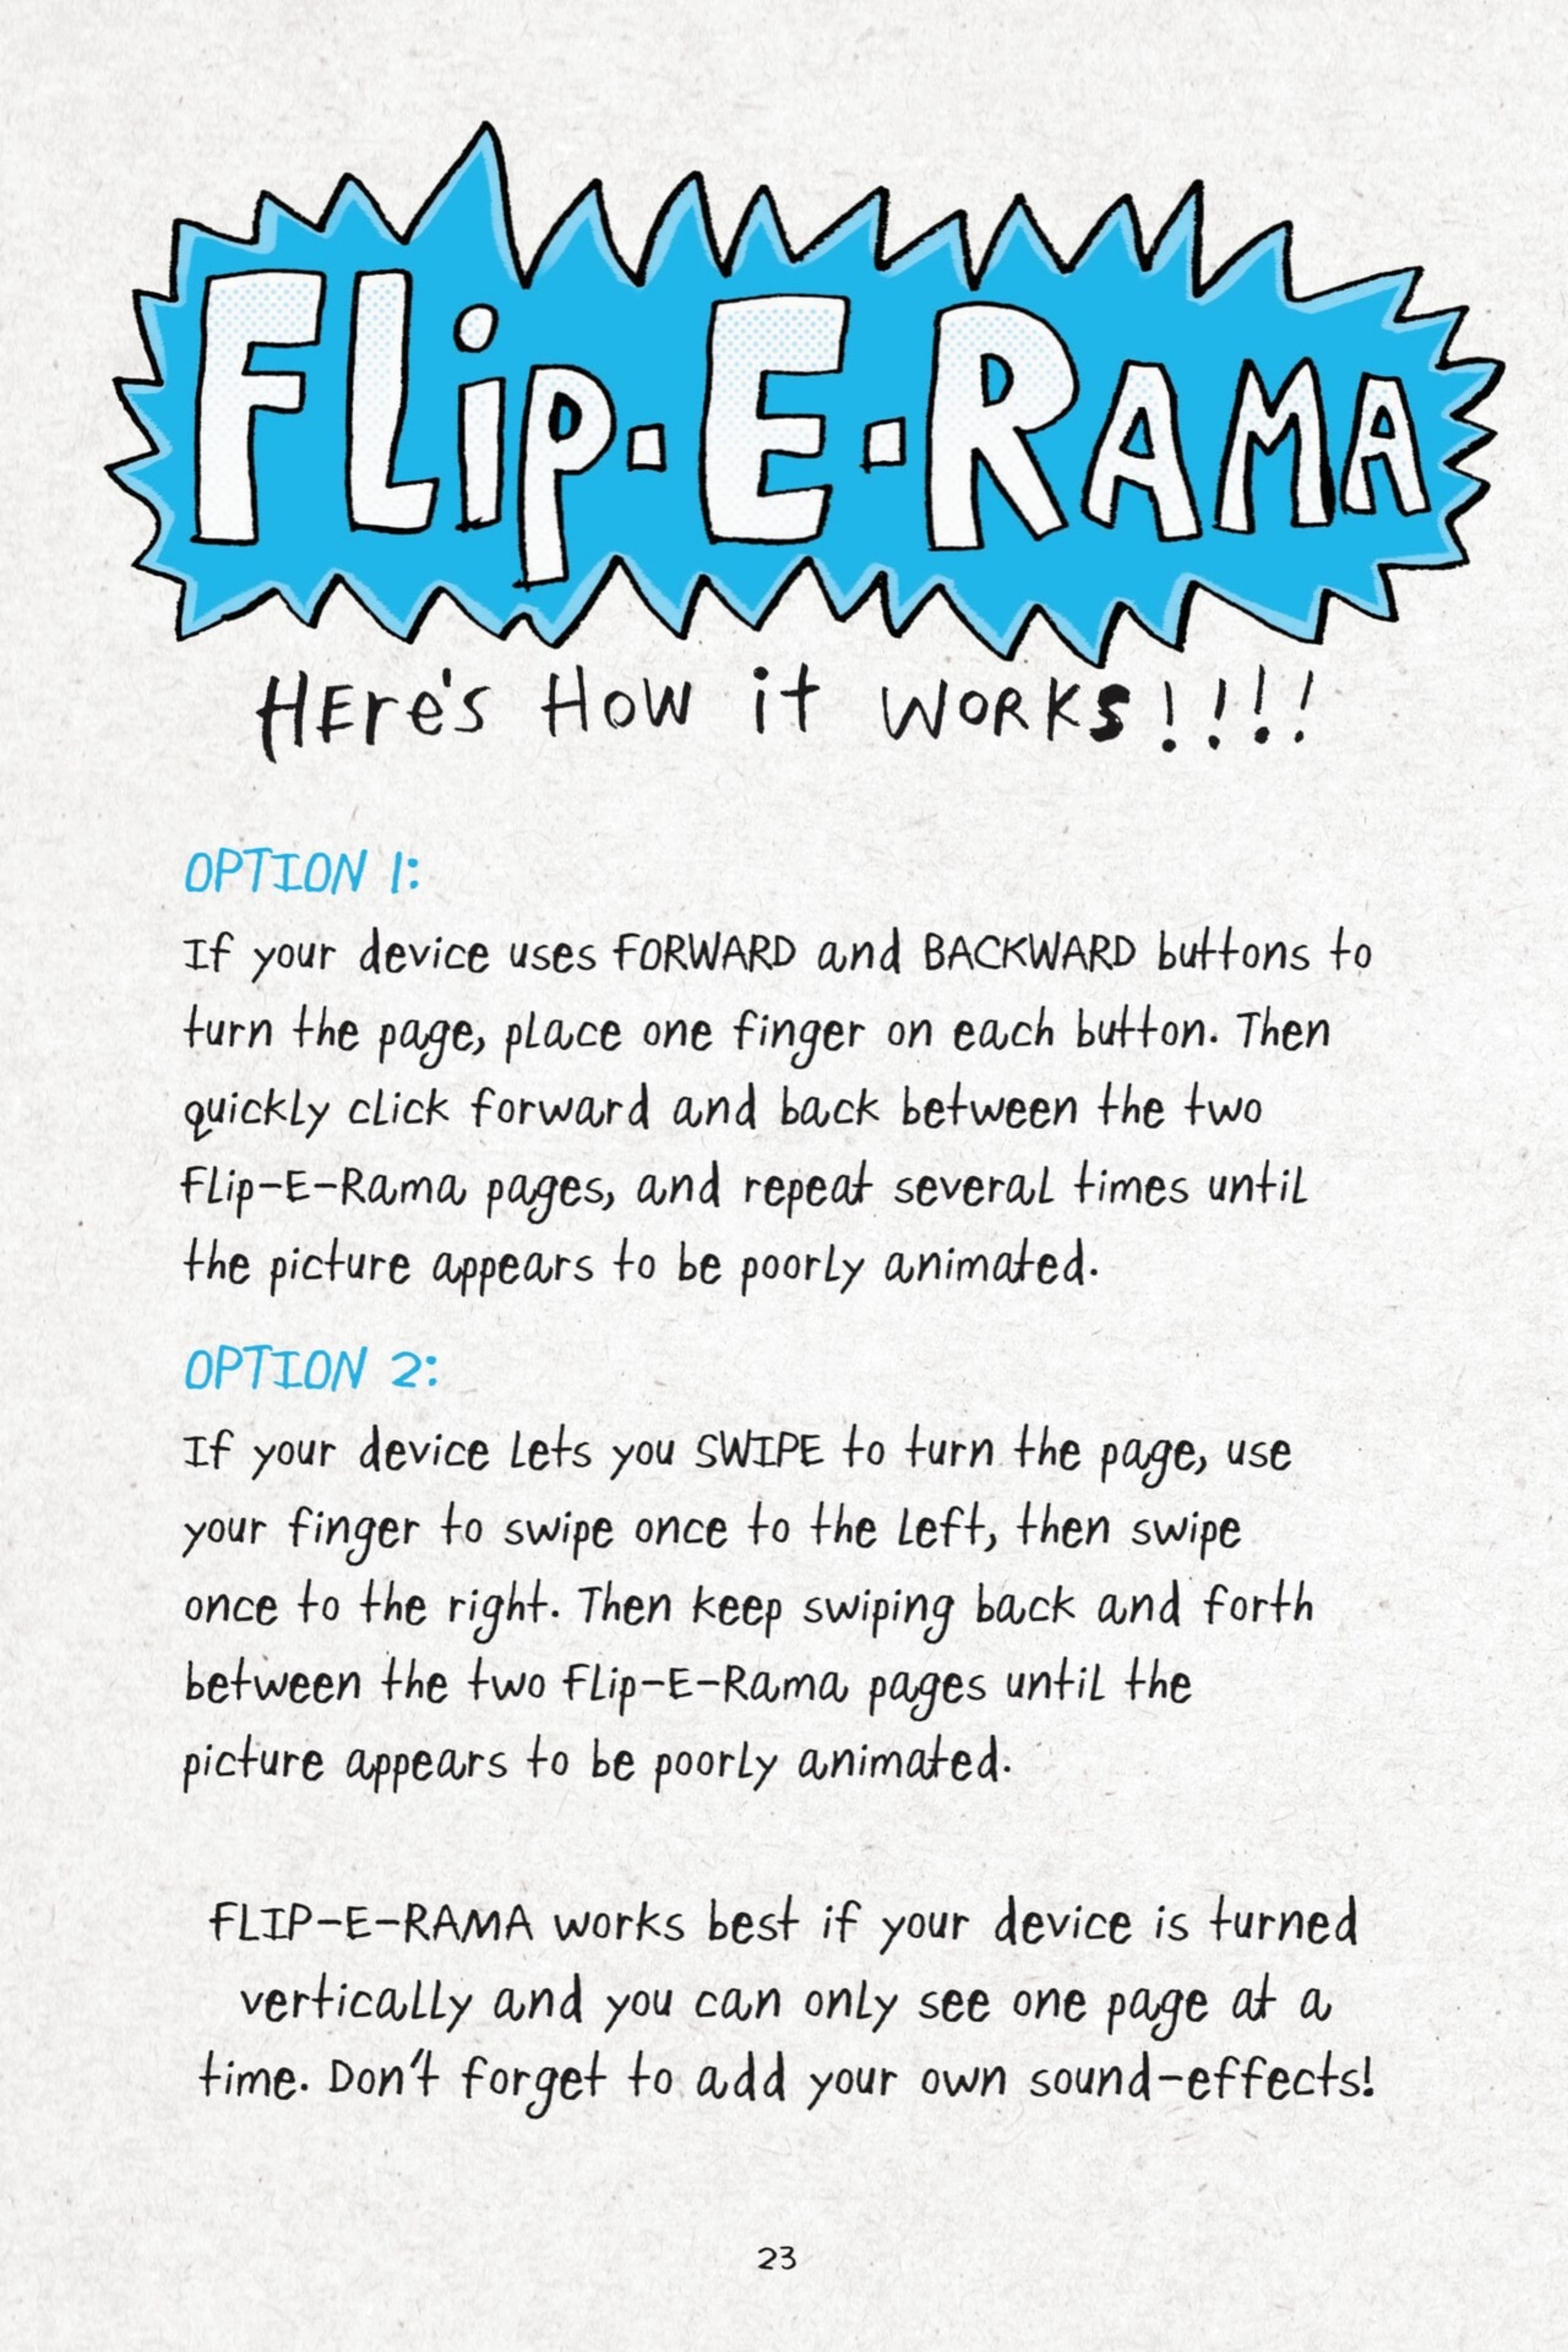 FLiP-E-RAMA
HEre's How it WORKs!!!!
OPTION 1:
If your device uses FORWARD and BACKWARD buttons to
turn the page, place one finger on each button. Then
quickly click forward and back between the two
Flip-E-Rama pages, and repeat several times until
the picture appears to be poorly animated.
OPTION 2:
If your device lets you SWIPE to turn the page, use
your finger to swipe once to the left, then swipe
once to the right. Then keep swiping back and forth
between the two Flip-E-Rama pages until the
picture appears to be poorly animated.
FLIP-E-RAMA works best if your device is turned
vertically and you can only see one page at a
time. Don't forget to add your own sound-effects!
23